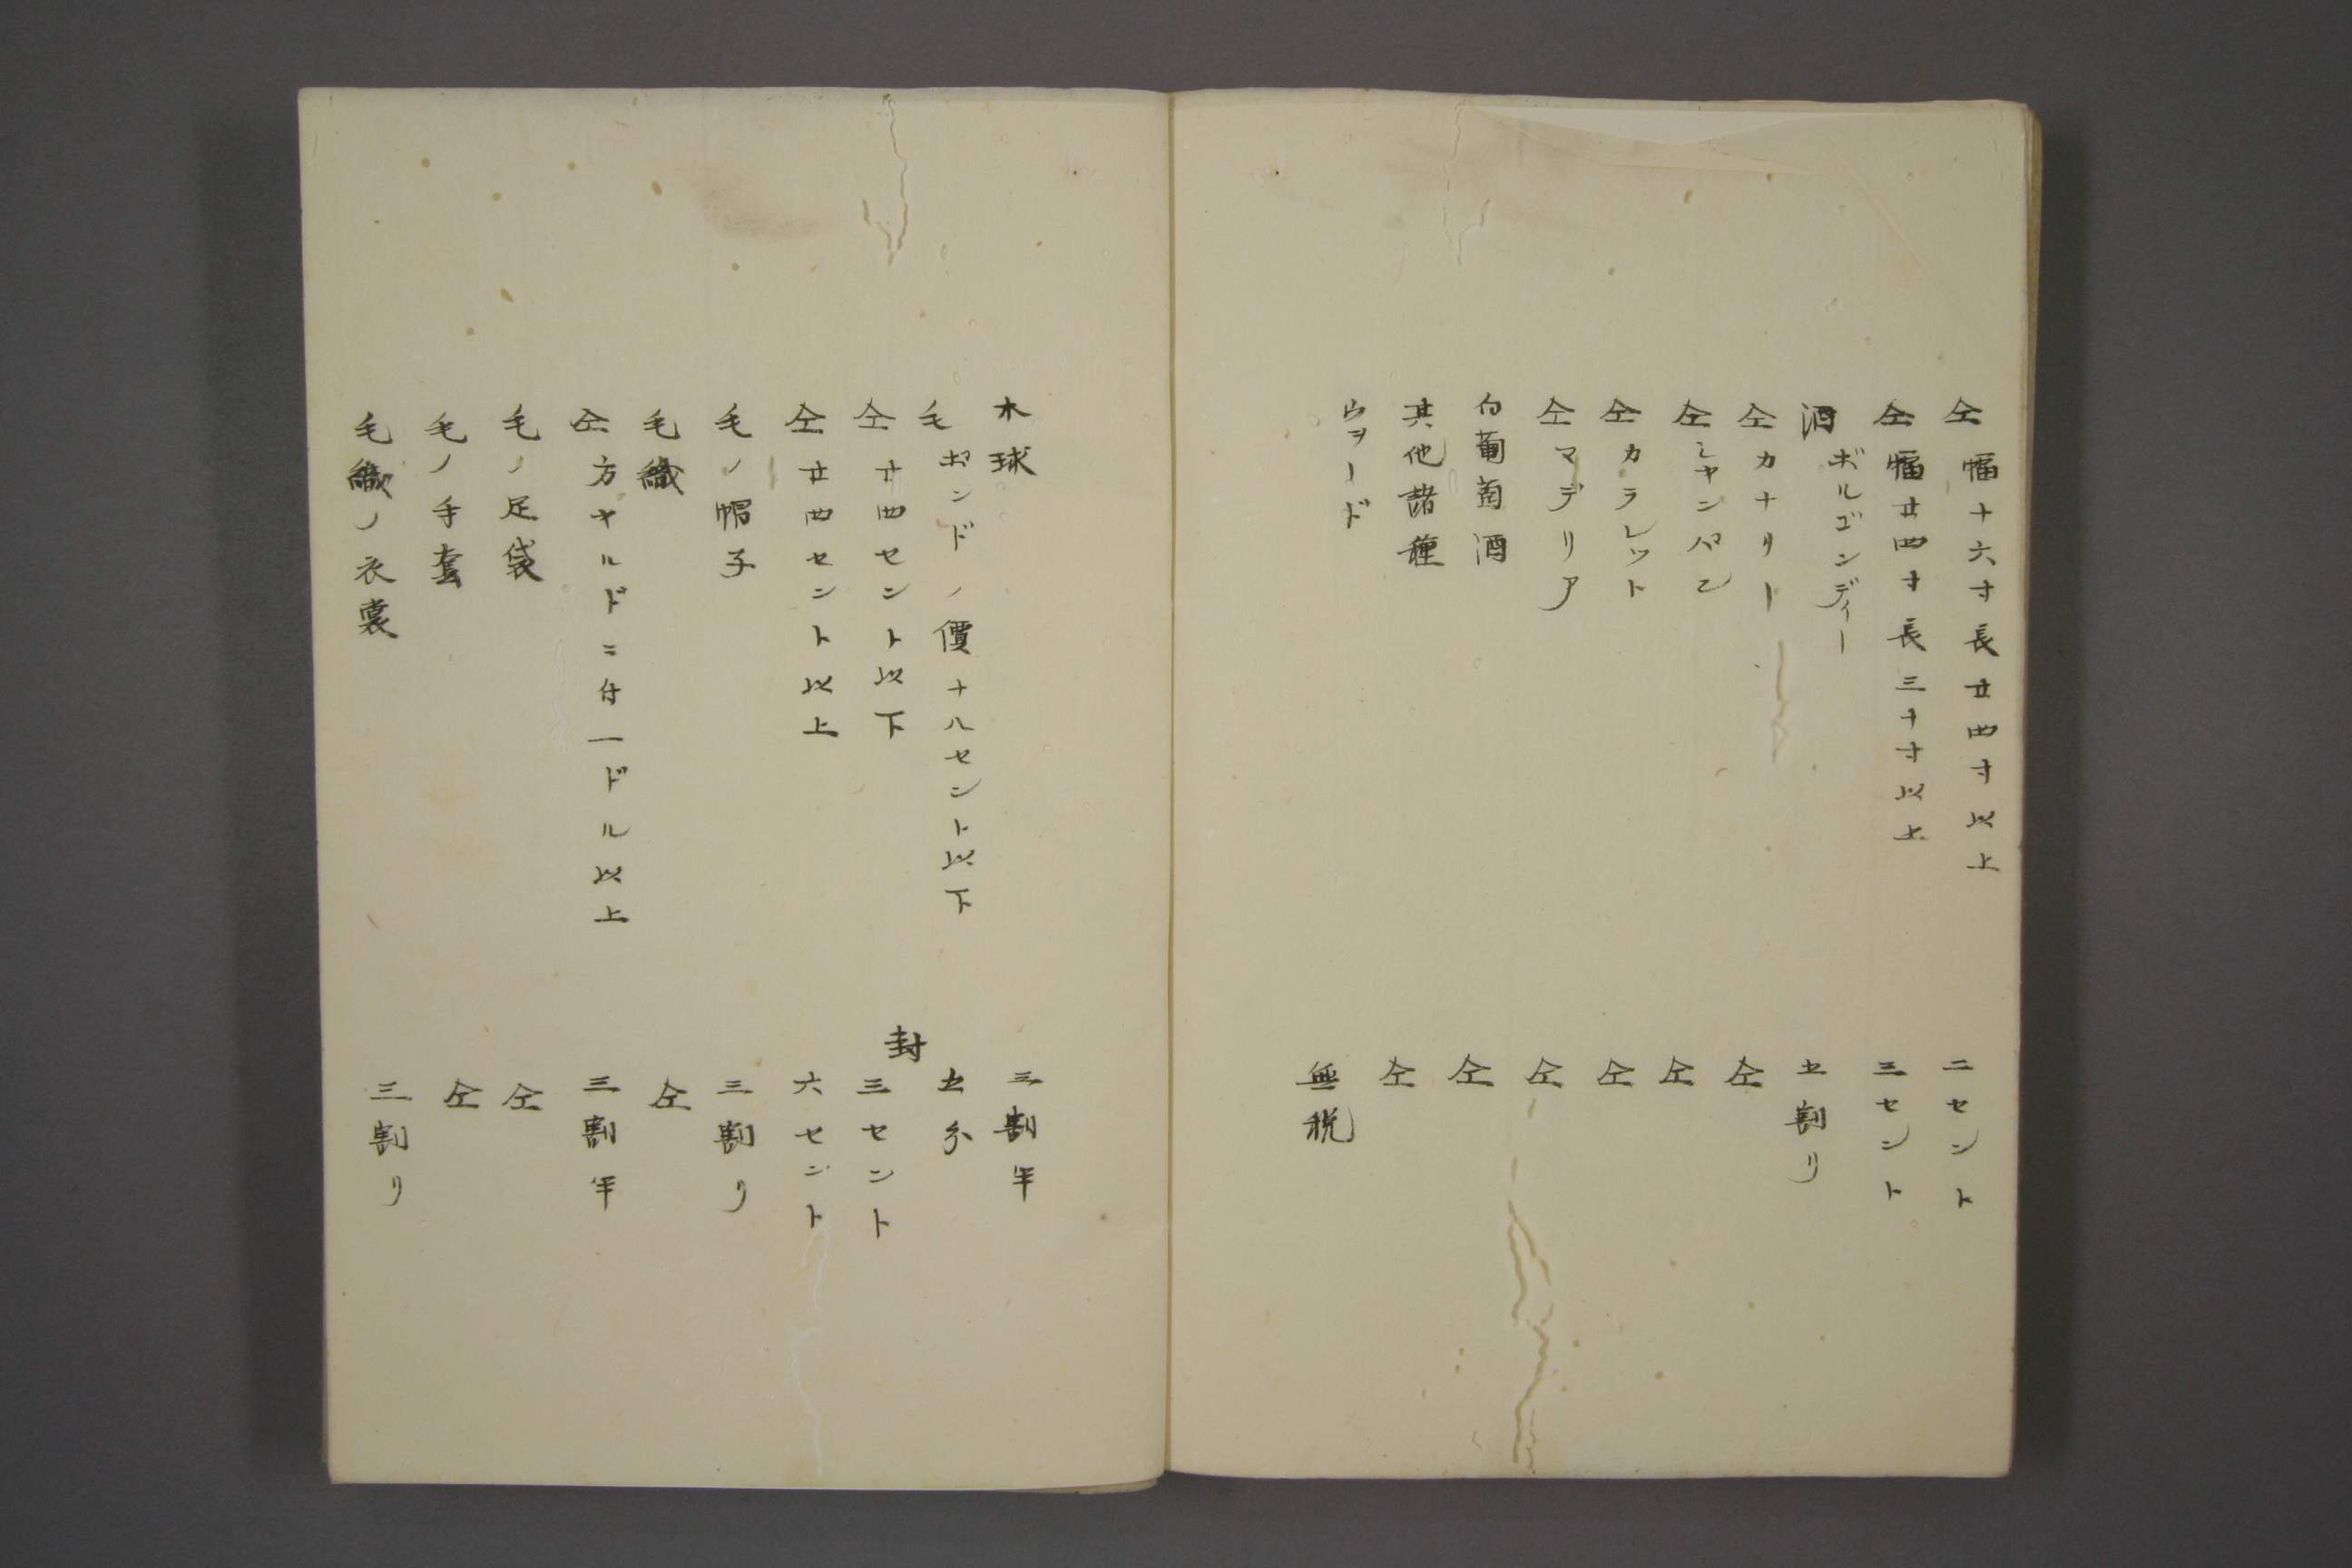 仝 幅十六寸長廿四寸以上 二セント
仝 幅廿四寸長三十寸以上 三セント
酒 ボルゴンディー 五割リ
仝 カナリー 仝
仝 シャンパン 仝
仝 カラレット 仝
仝 マデリア 仝
白葡萄酒 仝
其他諸種 仝
ウヲード 無税
木球 三割半
毛 ポンドノ價十八セント以下 五分
仝 廿四セント以下 封三セント
仝 廿四セント以上 六セント
毛ノ帽子 三割リ
毛織 仝
仝 方ヤルドニ付一ドル以上 三割半
毛ノ足袋 仝
毛ノ手套 仝
毛織ノ衣裳 三割リ